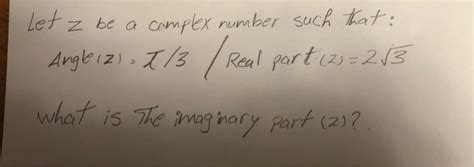 Let z be a complex number such that:
Angle(z) = π/3 / Real part (z) = 2√3
what is The imaginary part (z)?